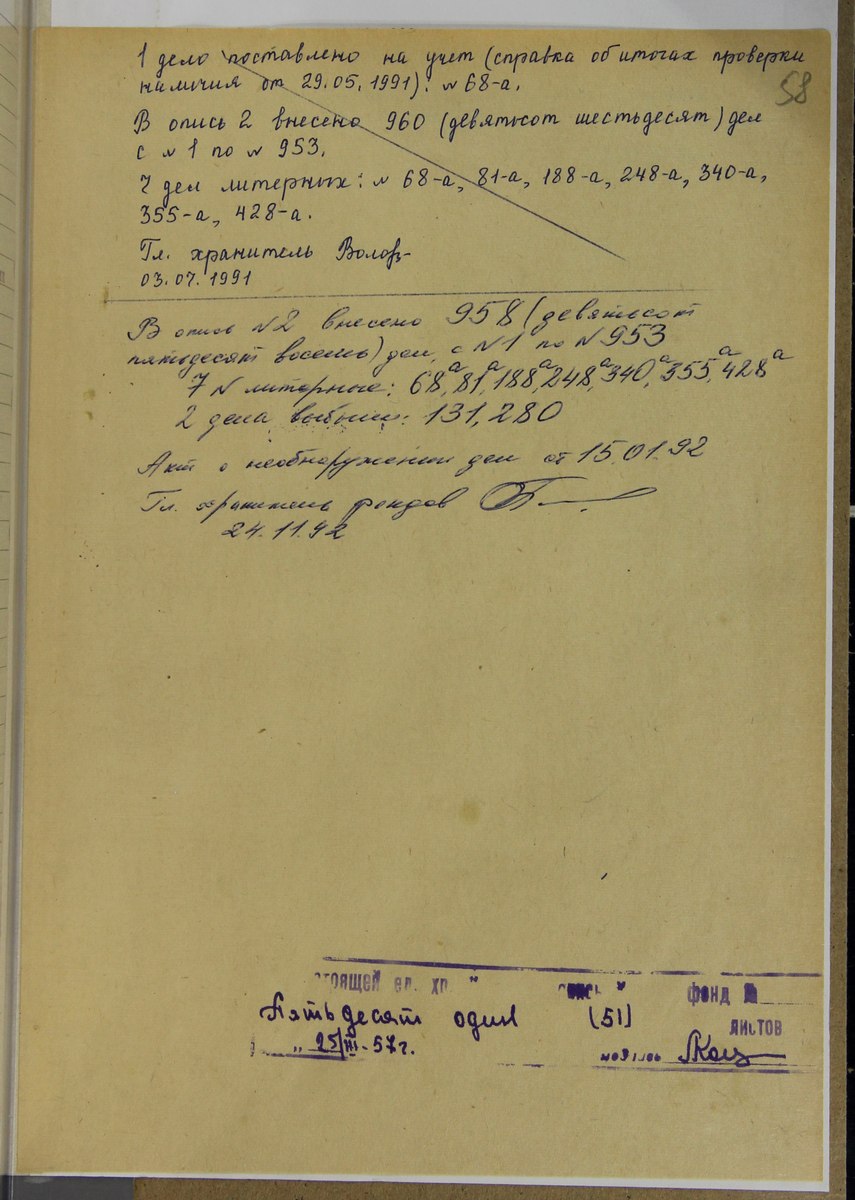 1 дело поставлено на учет (справка об итогах проверки
наличия от 29.05.1991): N 68-а.
58
В опись 2 внесено 960 (девятьсот шестьдесят) дел
с N 1 по N 953.
7 дел литерных: N 68-а, 81-а, 188-а, 248-а, 340-а,
355-а, 428-а.
Гл. хранитель
03.07.1991
В опись N2 внесено 958 (девятьсот
пятьдесят восемь) дел, с N1 по N 953
7 N литерные: 68а, 81а, 188а, 248а, 340а, 355а, 428а
2 дела выбыли: 131, 280
Акт о необнаружении дел от 15.01.92
Гл. хранитель фондов
24.11.92
тоящей ед. хр. фонд №
Пятьдесят один (51)
листов
„ 25/III-57г.